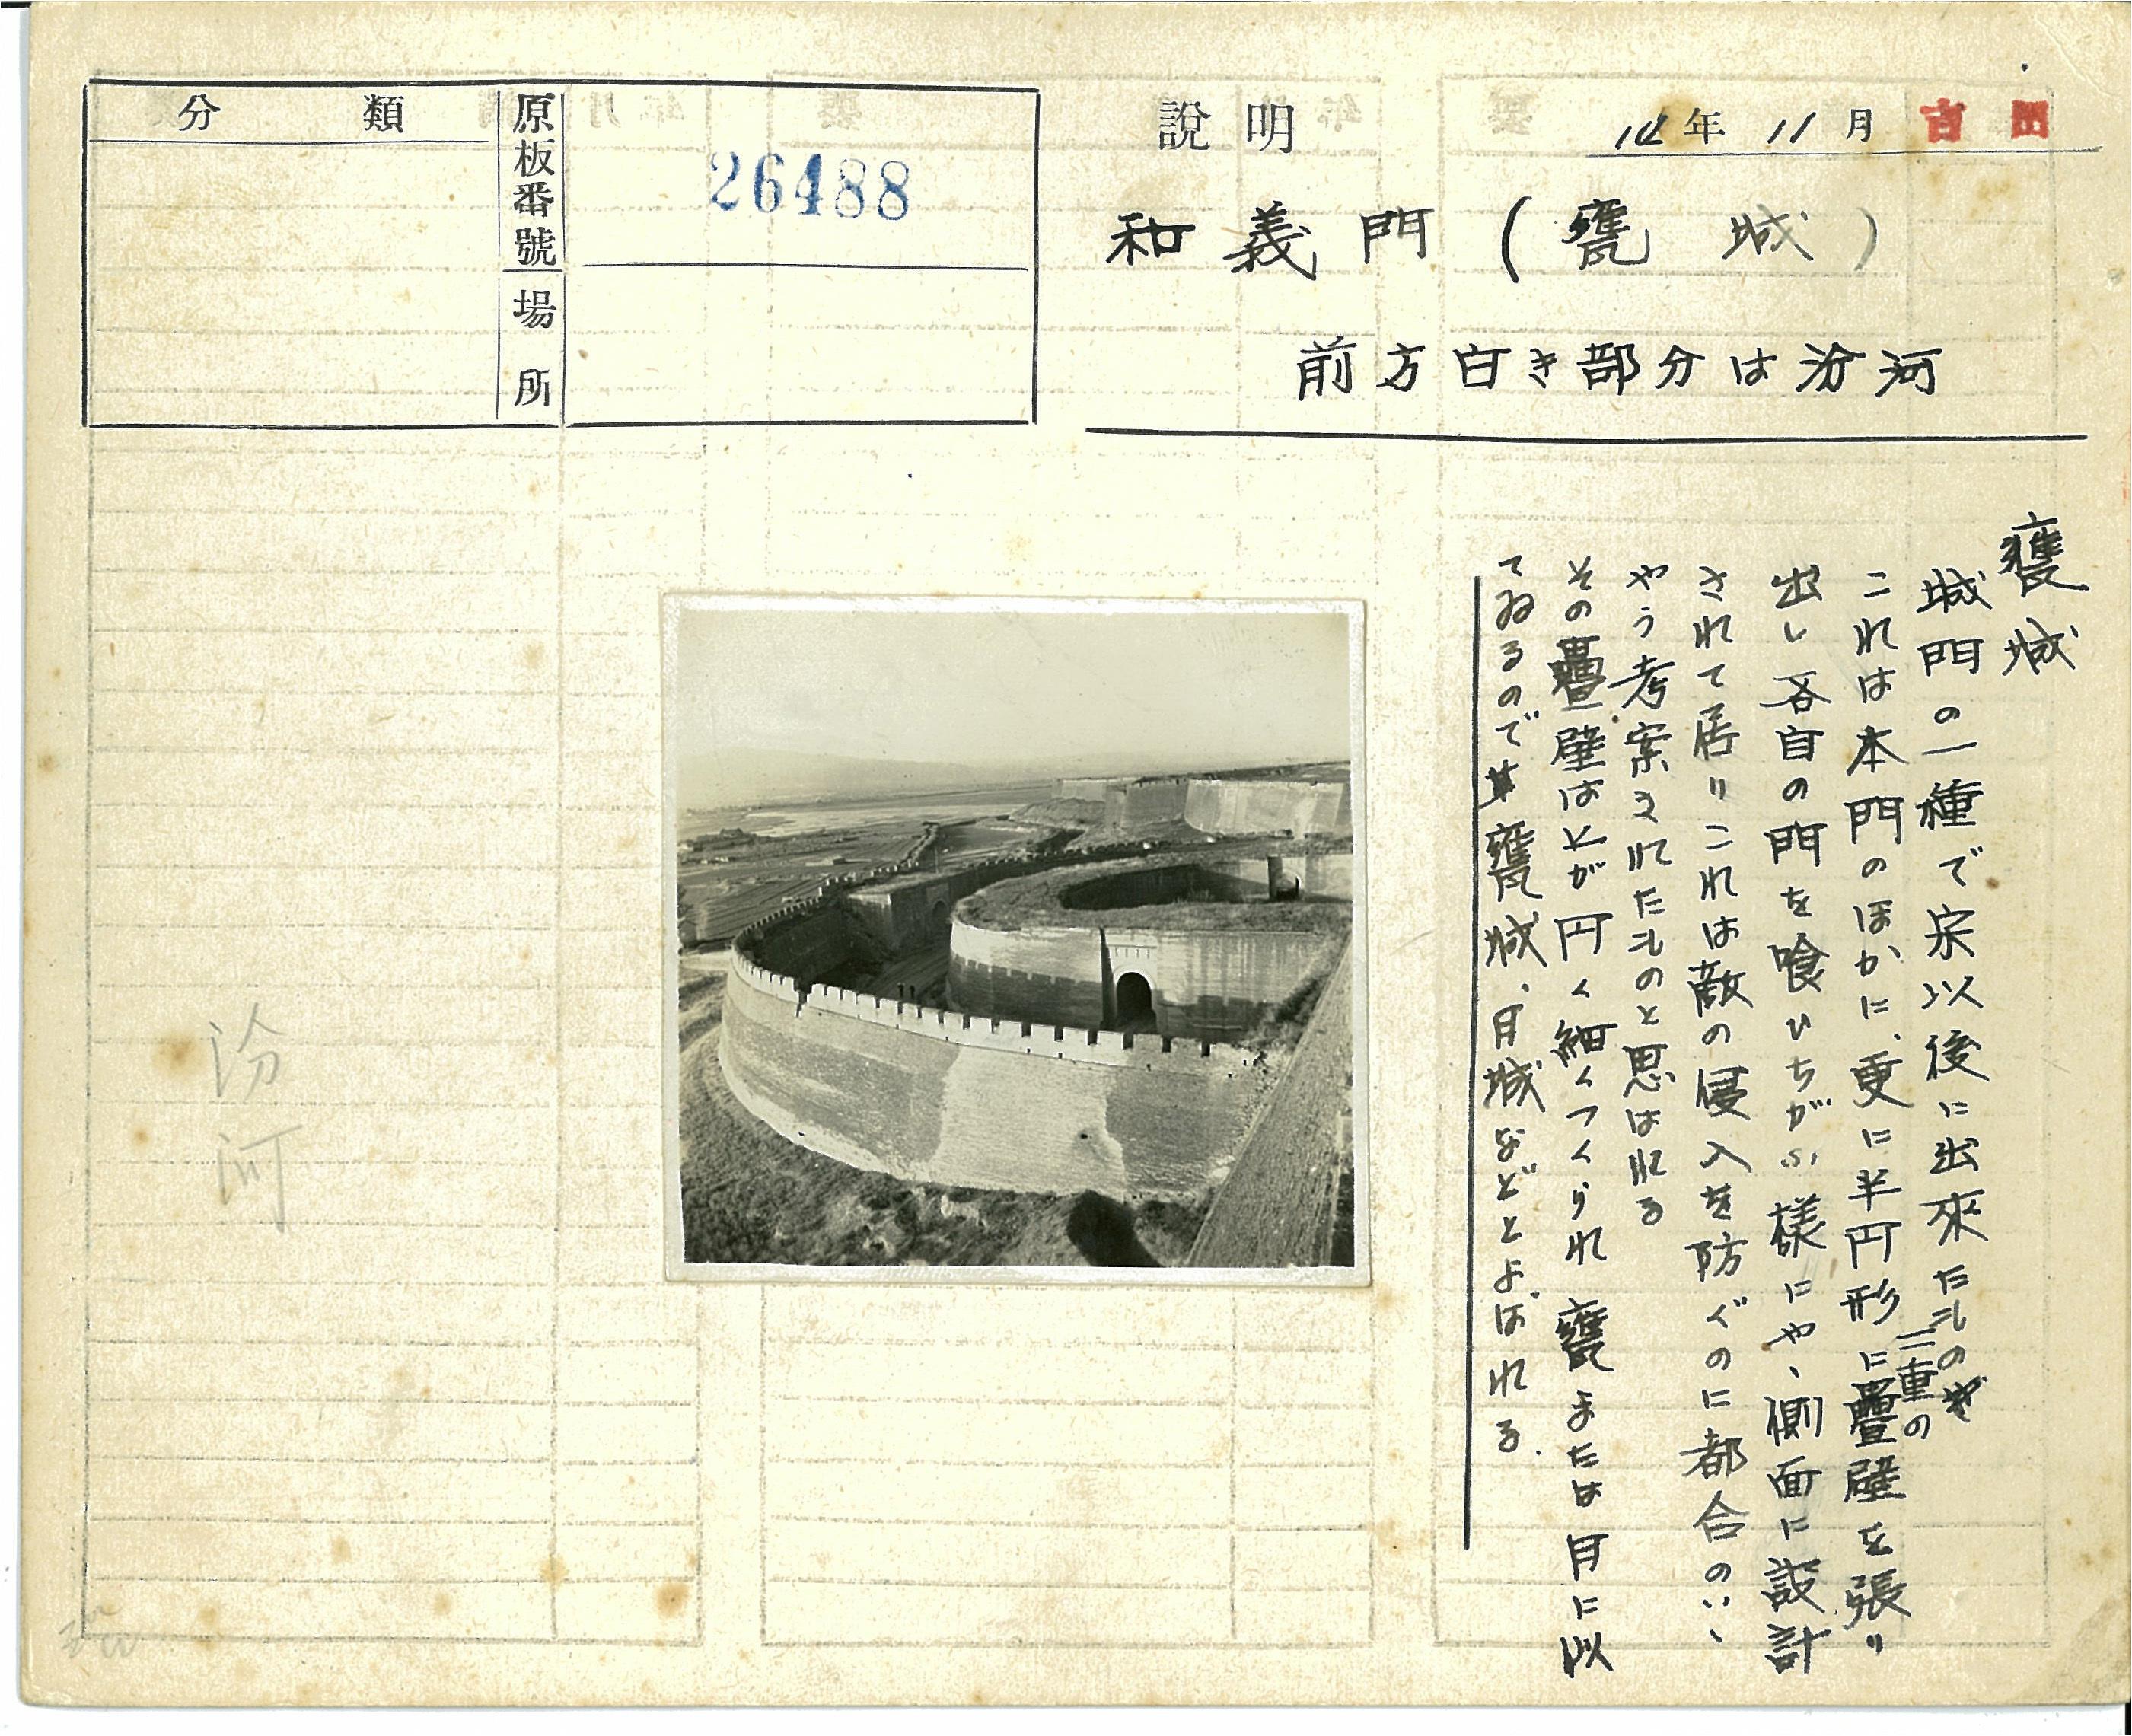 分類
原板番號
26488
場所
說明
14年11月
吉田
和義門(甕城)
前方白き部分は汾河
甕城
城門の一種で宋以後に出來たもの
これは本門のほかに、更に半円形に三重の疊壁を張り
出し各自の門を喰ひちがふ様にや、側面に設計
されて居りこれは敵の侵入を防ぐのに都合のいゝ
やう考案されたものと思はれる
その疊壁は上が円く細くつくられ甕または月に以
てゐるので甕城、月城などとよばれる.
汾河